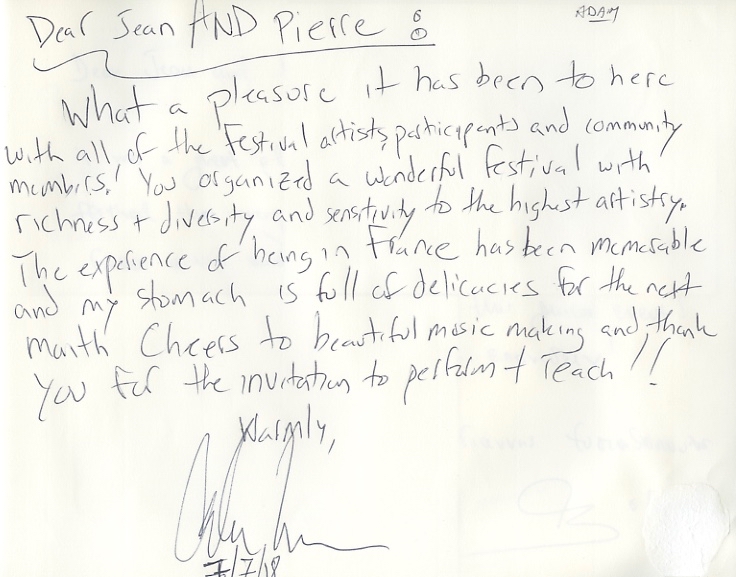 ADAM
Dear Jean AND Pierre :
What a pleasure it has been to here
with all of the festival artists, participants and community
members! You organized a wonderful festival with
richness + diversity and sensitivity to the highest artistry.
The experience of being in France has been memorable
and my stomach is full of delicacies for the next
month Cheers to beautiful music making and thank
you for the invitation to perform + Teach!!
Warmly,
7/7/18